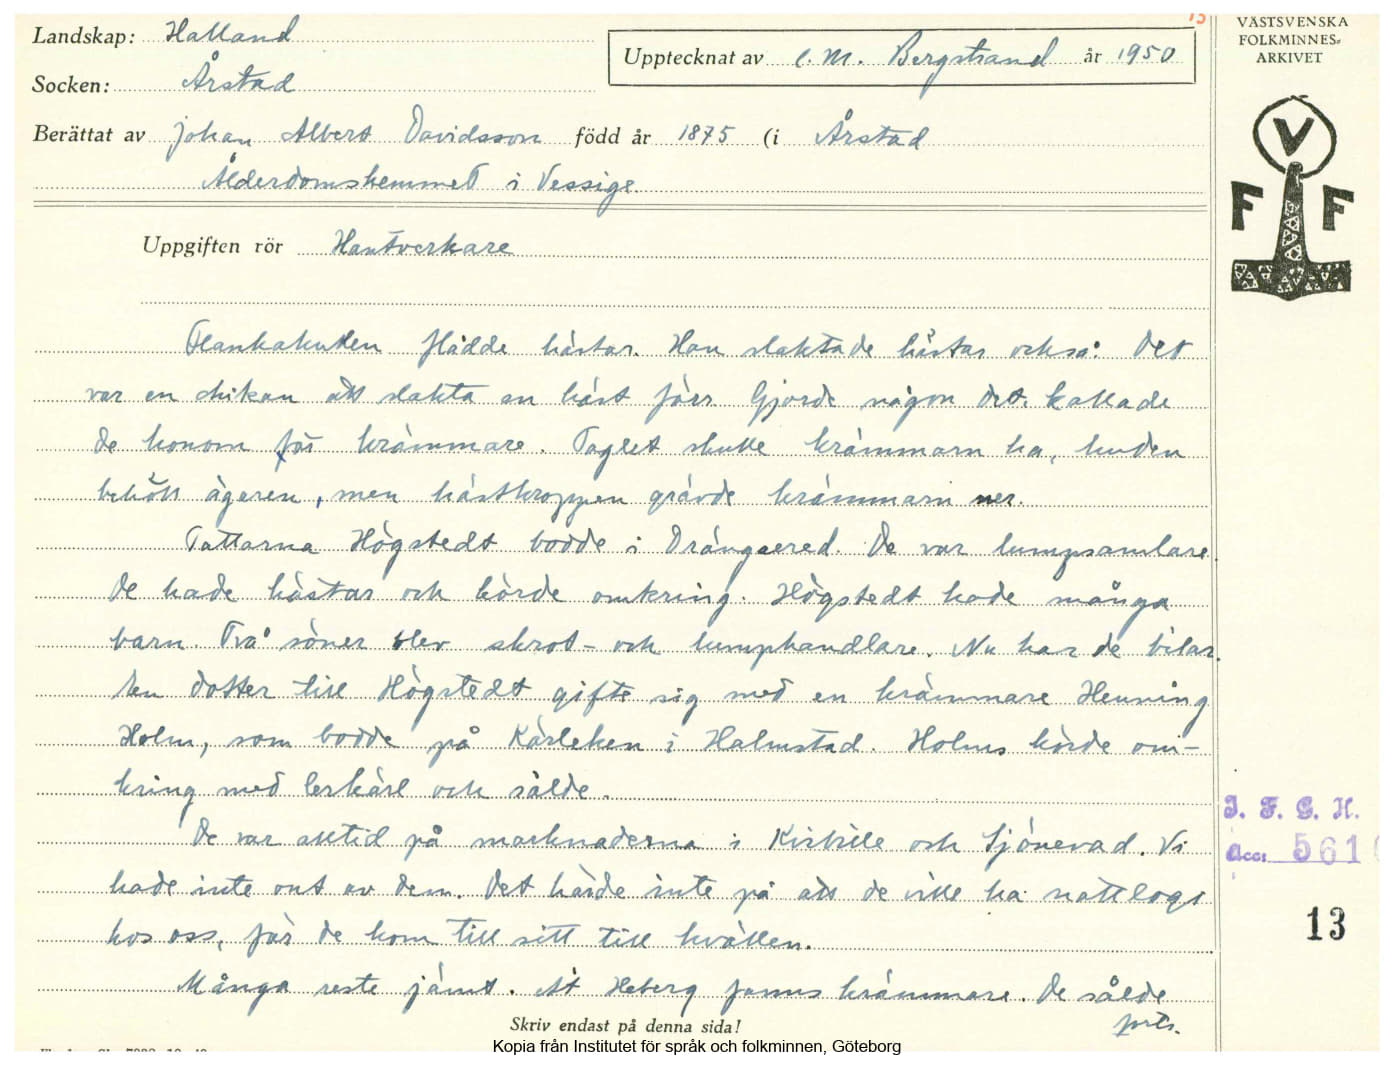 13
VÄSTSVENSKA
FOLKMINNES-
ARKIVET
Landskap: Halland
Upptecknat av C. M. Bergstrand år 1950
Socken: Årstad
Berättat av Johan Albert Davidsson född år 1875 (i Årstad
Ålderdomshemmet i Vessige
V
F F
Uppgiften rör Hantverkare
flådde hästar. Han slaktade hästar också. Det
var en skikan att slakta en häst förr. Gjorde någon det kallade
de honom för krämmare. Taglet skulle krämmarn ha, huden
behöll ägaren, men hästkroppen grävde krämmarn ner.
Tattarna Högstedt bodde i Drängsered. De var lumpsamlare.
De hade hästar och körde omkring. Högstedt hade många
barn. Två söner blev skrot- och lumphandlare. Nu har de bilar.
En dotter till Högstedt gifte sig med en krämmare Henning
Holm, som bodde på Kärleken i Halmstad. Holms körde om-
kring med lerkärl och sålde.
De var alltid på marknaderna i och Sjönevad. Vi
hade inte ont av dem. Det hörde inte på att de ville ha nattlogi
hos oss, för de kom till sitt till kvällen.
Många reste jämt. At Heberg fanns krämmare. De sålde
forts.
I. F. G. H.
Acc: 561
13
Skriv endast på denna sida!
Kopia från Institutet för språk och folkminnen, Göteborg